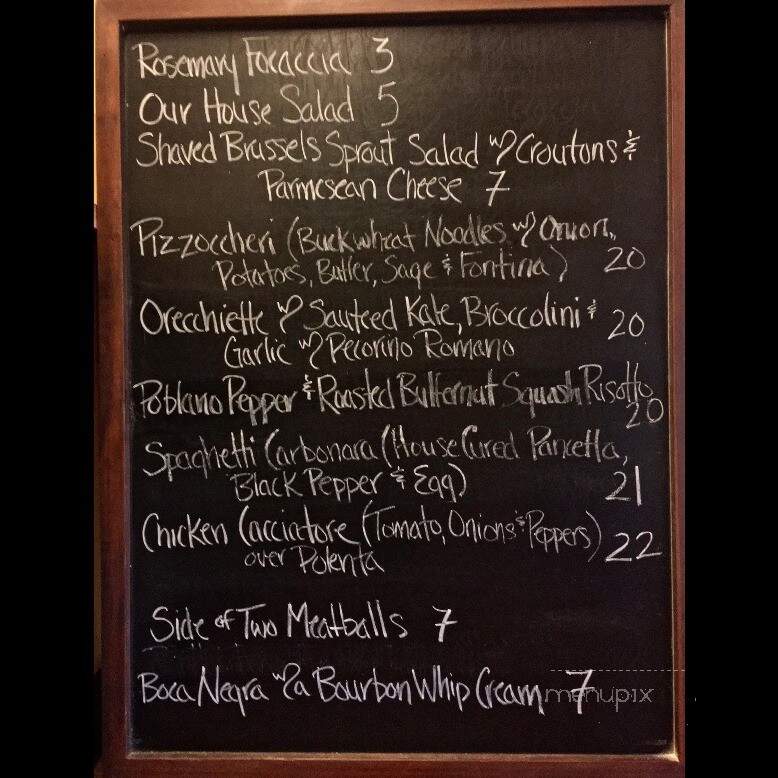 Rosemary Focaccia 3
Our House Salad 5
Shaved Brussels Sprout Salad w/ Croutons &
Parmesean Cheese 7
Pizzoccheri (Buckwheat Noodles w/ Onion,
Potatoes, Butter, Sage & Fontina) 20
Orecchiette w/ Sauteed Kale, Broccolini & 20
Garlic w/ Pecorino Romano
Poblano Pepper & Roasted Butternut Squash Risotto
20
Spaghetti Carbonara (House Cured Pancetta,
Black Pepper & Egg) 21
Chicken Cacciatore (Tomato, Onions & Peppers) 22
over Polenta
Side of Two Meatballs 7
Boca Negra w/ a Bourbon Whip Cream 7
menupix